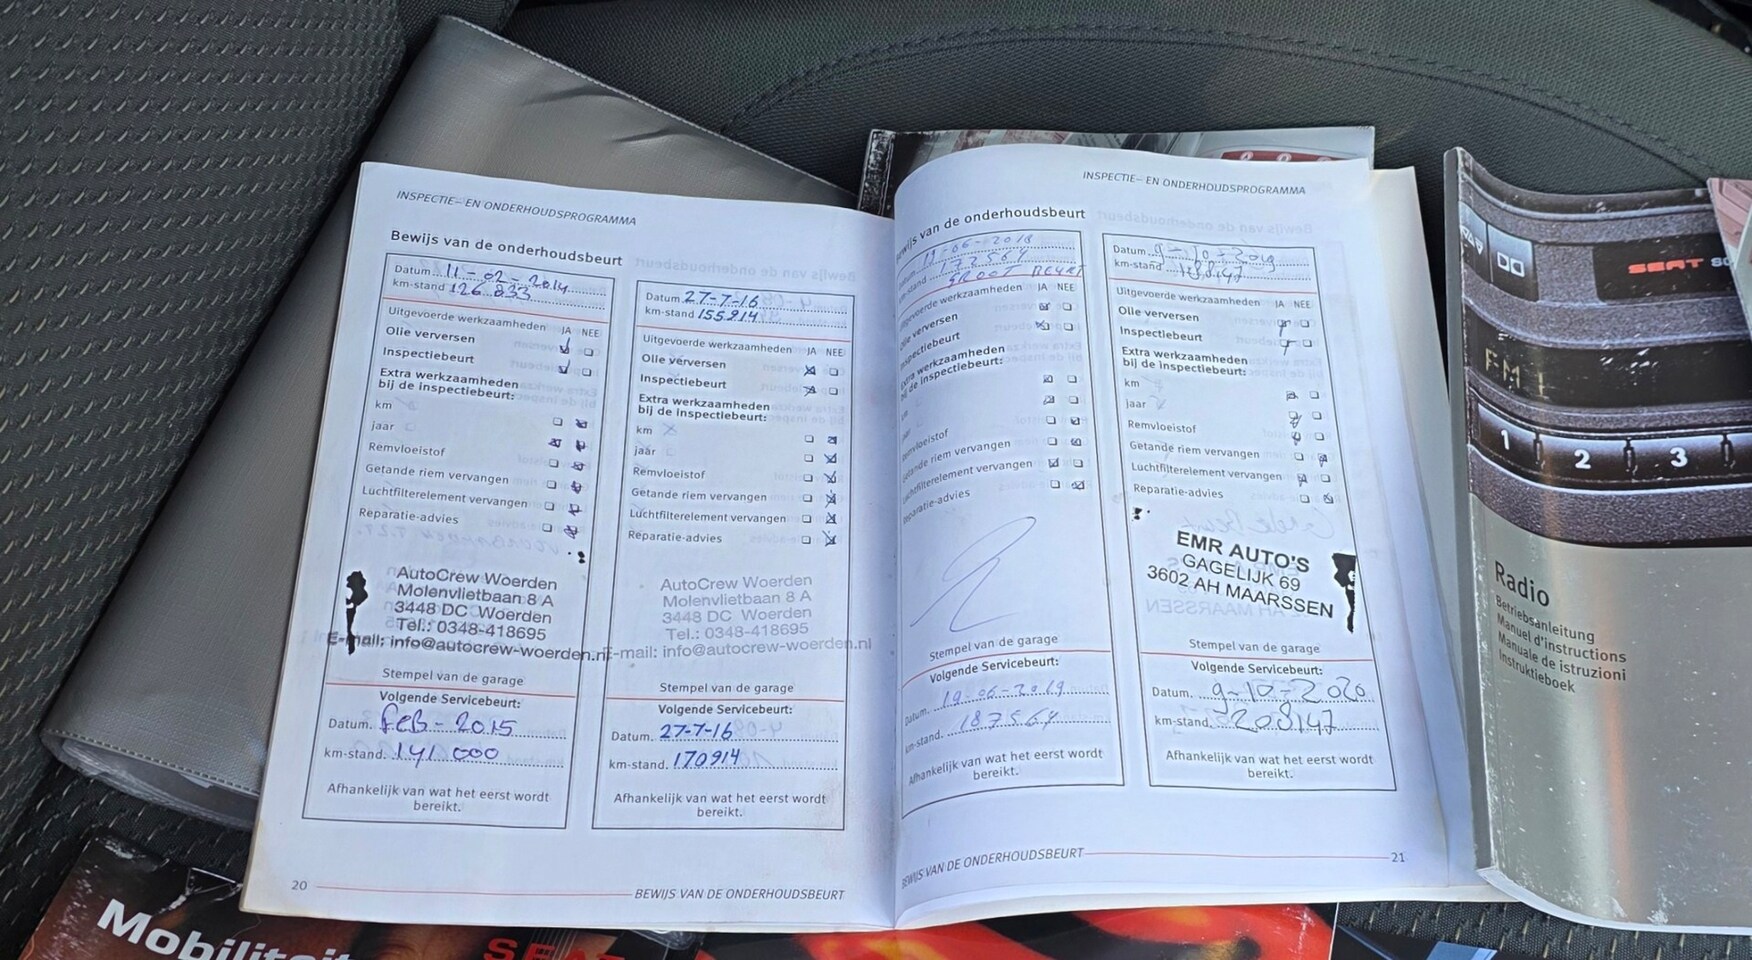 INSPECTIE- EN ONDERHOUDSPROGRAMMA
Bewijs van de onderhoudsbeurt
Datum. 11-02-2014
km-stand 126.833
Uitgevoerde werkzaamheden JA NEE
Olie verversen
Inspectiebeurt
Extra werkzaamheden
bij de inspectiebeurt:
km
jaar
Remvloeistof
Getande riem vervangen
Luchtfilterelement vervangen
Reparatie-advies
AutoCrew Woerden
Molenvlietbaan 8 A
3448 DC Woerden
Tel.: 0348-418695
E-mail: info@autocrew-woerden.nl
Stempel van de garage
Volgende Servicebeurt:
Datum. FEB - 2015
km-stand. 141 000
Afhankelijk van wat het eerst wordt
bereikt.
Datum 27-7-16
km-stand 155914
Uitgevoerde werkzaamheden JA NEE
Olie verversen
Inspectiebeurt
Extra werkzaamheden
bij de inspectiebeurt:
km
jaar
Remvloeistof
Getande riem vervangen
Luchtfilterelement vervangen
Reparatie-advies
AutoCrew Woerden
Molenvlietbaan 8 A
3448 DC Woerden
Tel.: 0348-418695
E-mail: info@autocrew-woerden.nl
Stempel van de garage
Volgende Servicebeurt:
Datum. 27-7-16
km-stand. 170914
Afhankelijk van wat het eerst wordt
bereikt.
20
BEWIJS VAN DE ONDERHOUDSBEURT
INSPECTIE- EN ONDERHOUDSPROGRAMMA
Bewijs van de onderhoudsbeurt
-06-2018
172564
GROOT BEURT
Uitgevoerde werkzaamheden JA NEE
Olie verversen
Inspectiebeurt
Extra werkzaamheden
bij de inspectiebeurt:
jaar
Remvloeistof
Getande riem vervangen
Luchtfilterelement vervangen
Reparatie-advies
Stempel van de garage
Volgende Servicebeurt:
Datum. 19-06-2019
km-stand. 187564
Afhankelijk van wat het eerst wordt
bereikt.
Datum. 9-10-2019
km-stand 188147
Uitgevoerde werkzaamheden JA NEE
Olie verversen
Inspectiebeurt
Extra werkzaamheden
bij de inspectiebeurt:
km
jaar
Remvloeistof
Getande riem vervangen
Luchtfilterelement vervangen
Reparatie-advies
EMR AUTO'S
GAGELIJK 69
3602 AH MAARSSEN
Stempel van de garage
Volgende Servicebeurt:
Datum. 9-10-2020
km-stand. 208147
Afhankelijk van wat het eerst wordt
bereikt.
BEWIJS VAN DE ONDERHOUDSBEURT
21
SEAT
FM1
1 2 3
Radio
Betriebsanleitung
Manuel d'instructions
Manuale de istruzioni
Instruktieboek
Mobiliteit
SEAT